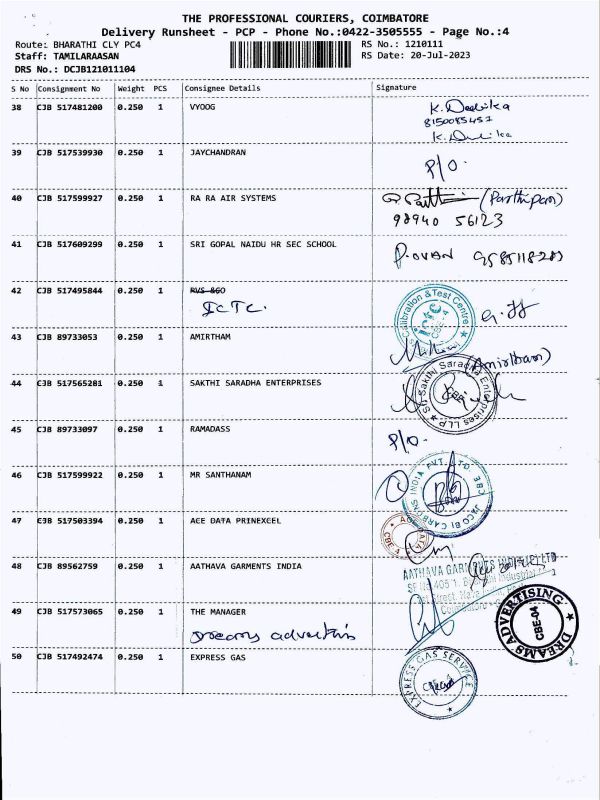 THE PROFESSIONAL COURIERS, COIMBATORE
Delivery Runsheet - PCP - Phone No.:0422-3505555 - Page No.:4
Route: BHARATHI CLY PC4 RS No.: 1210111
Staff: TAMILARAASAN RS Date: 20-Jul-2023
DRS No.: DCJB121011104
S No Consignment No Weight PCS Consignee Details Signature
38 CJB 517481200 0.250 1 VYOOG K. Deebika
8150085457
39 CJB 517539930 0.250 1 JAYCHANDRAN P/O.
40 CJB 517599927 0.250 1 RA RA AIR SYSTEMS (Parthipan)
98940 56123
41 CJB 517609299 0.250 1 SRI GOPAL NAIDU HR SEC SCHOOL
42 CJB 517495844 0.250 1 RVS &GO
ICTC.
Calibration & Test Centre
ictc
CBE-4
43 CJB 89733053 0.250 1 AMIRTHAM
(Amirtham)
44 CJB 517565281 0.250 1 SAKTHI SARADHA ENTERPRISES
Sri Sakthi Saradha Enterprises LLP
CBE
45 CJB 89733097 0.250 1 RAMADASS P/O.
46 CJB 517599922 0.250 1 MR SANTHANAM
JACOBI CARBONS INDIA PVT. LTD. CBE
47 CJB 517503394 0.250 1 ACE DATA PRINEXCEL
ACE DATA
CBE 4
48 CJB 89562759 0.250 1 AATHAVA GARMENTS INDIA
AATHAVA GARMENTS INDIA LTD
49 CJB 517573065 0.250 1 THE MANAGER
Dreams advertisis
DREAMS ADVERTISING
CBE-04
50 CJB 517492474 0.250 1 EXPRESS GAS
EXPRESS GAS SERVICE